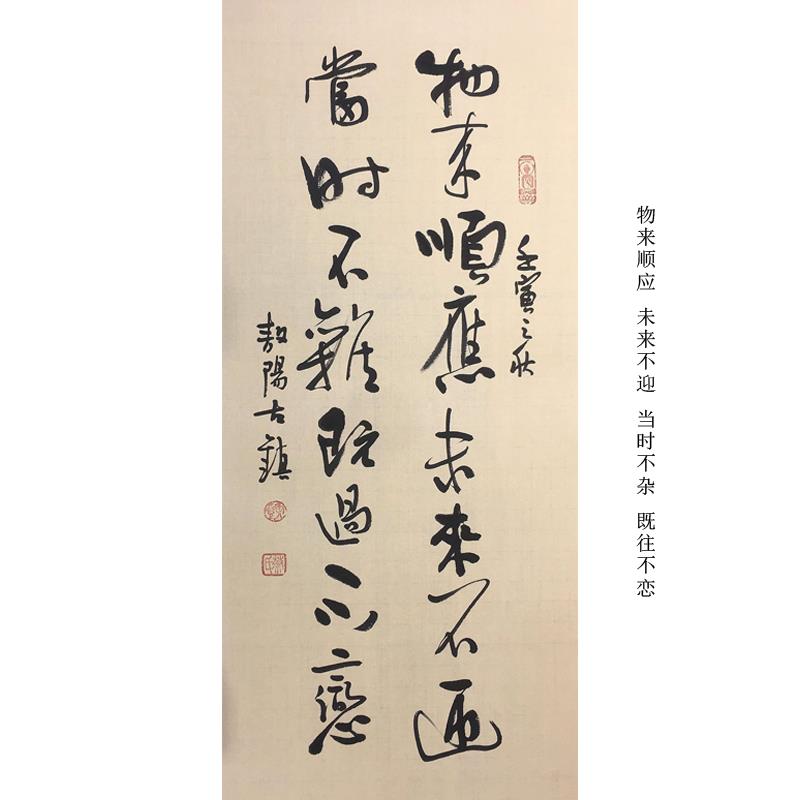 物来顺应 未来不迎 当时不杂 既往不恋
壬寅之秋
物来順應未來不迎
當时不雜既過不戀
敖陽古鎮